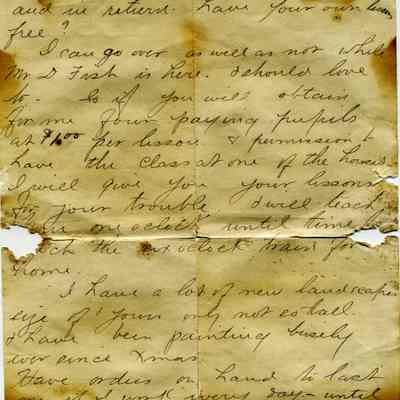 and in return have your own lessons
free?
I can go over as well as not while
Mr I Frst is here. I should love
to. So if you will obtain
for me four paying pupils
at $1.00 per lesson & permission to
have the class at one of the houses
I will give you your lessons
for your trouble. I will teach
one oclock until time
the oclock train for
home.
I have a lot of new landscapes
size of yours only not so tall.
I have been painting busely
ever since Xmas
Have orders on hand to last
if I work every day until